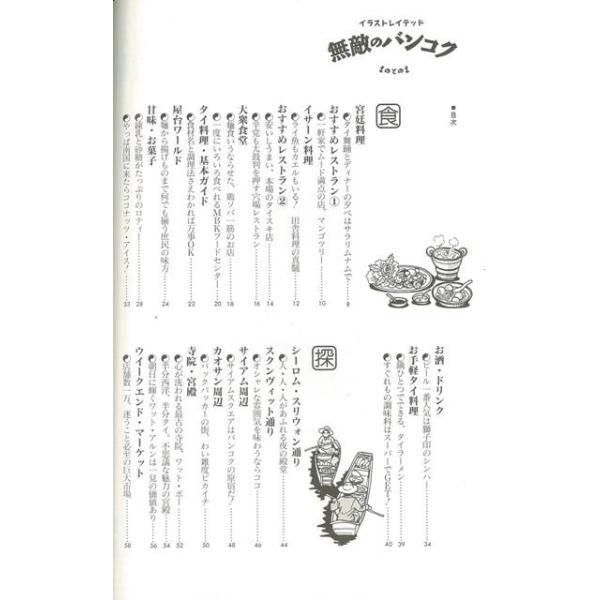 イラストレイテッド
無敵のバンコク
●目次
食
宮廷料理
タイ舞踊とディナーの夕べはサラリムナムで……8
おすすめレストラン①
一軒家でムード満点の店、マンゴツリー……10
イサーン料理
ライ魚もカエルもいる！ 田舎料理の真髄……12
おすすめレストラン②
安いしうまい、本場のタイスキ店……14
辛党も太鼓判を押す穴場レストラン……16
大衆食堂
麺食いうならせた、鶏ソバ一筋のお店……18
一度にいろいろ食べれるMBKフードセンター……20
タイ料理・基本ガイド
食材名と調理法さえわかれば万事OK……22
屋台ワールド
麺から揚げものまで何でも揃う庶民の味方……24
甘味・お菓子
練乳と砂糖がたっぷりのロティ……28
やっぱ南国に来たらココナッツ・アイス！……33
お酒・ドリンク
ビール一番人気は獅子印のシンハー……34
お手軽タイ料理
鍋ひとつでできる、タイラーメン……39
すぐれもの調味料はスーパーでGET！……40
探
シーロム・スリウォン通り
人・人・人があふれる夜の殿堂……44
スクンヴィット通り
オシャレな雰囲気を味わうならココ……46
サイアム周辺
サイアムスクエアはバンコクの原宿だ?……48
カオサン周辺
バックパッカーの街、わい雑度ピカイチ……50
寺院・宮殿
心が洗われる最古の寺院、ワット・ポー……52
半分西洋、半分タイ、不思議な魅力の宮殿……54
朝日に輝くワット・アルンは一見の価値あり……56
ウイークエンド・マーケット
店舗数一万、迷うこと必至の巨大市場……58